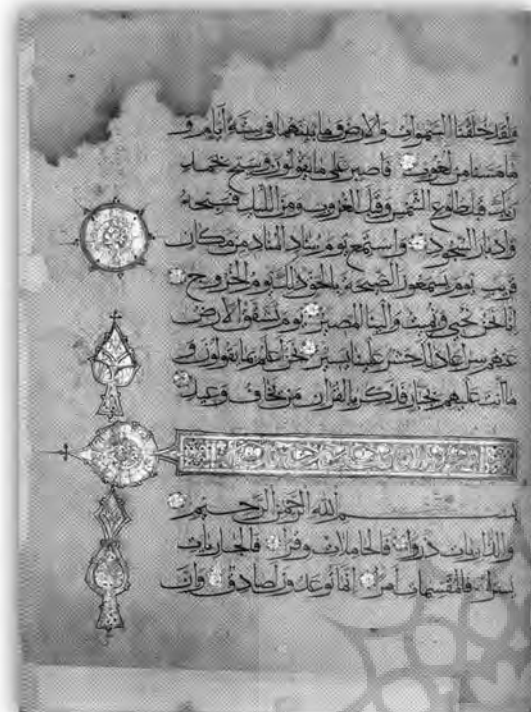 ولقد خلقنا السموات والارض وما بينهما في ستة ايام و
ما مسنا من لغوب فاصبر على ما يقولون وسبح بحمد
ربك قبل طلوع الشمس وقبل الغروب ومن الليل فسبحه
وادبار السجود واستمع يوم يناد المناد من مكان
قريب يوم يسمعون الصيحة بالحق ذلك يوم الخروج
انا نحن نحيي ونميت والينا المصير يوم تشقق الارض
عنهم سراعا ذلك حشر علينا يسير نحن اعلم بما يقولون و
ما انت عليهم بجبار فذكر بالقران من يخاف وعيد
بسم الله الرحمن الرحيم
والذاريات ذروا فالحاملات وقرا فالجاريات
يسرا فالمقسمات امرا انما توعدون لصادق وان